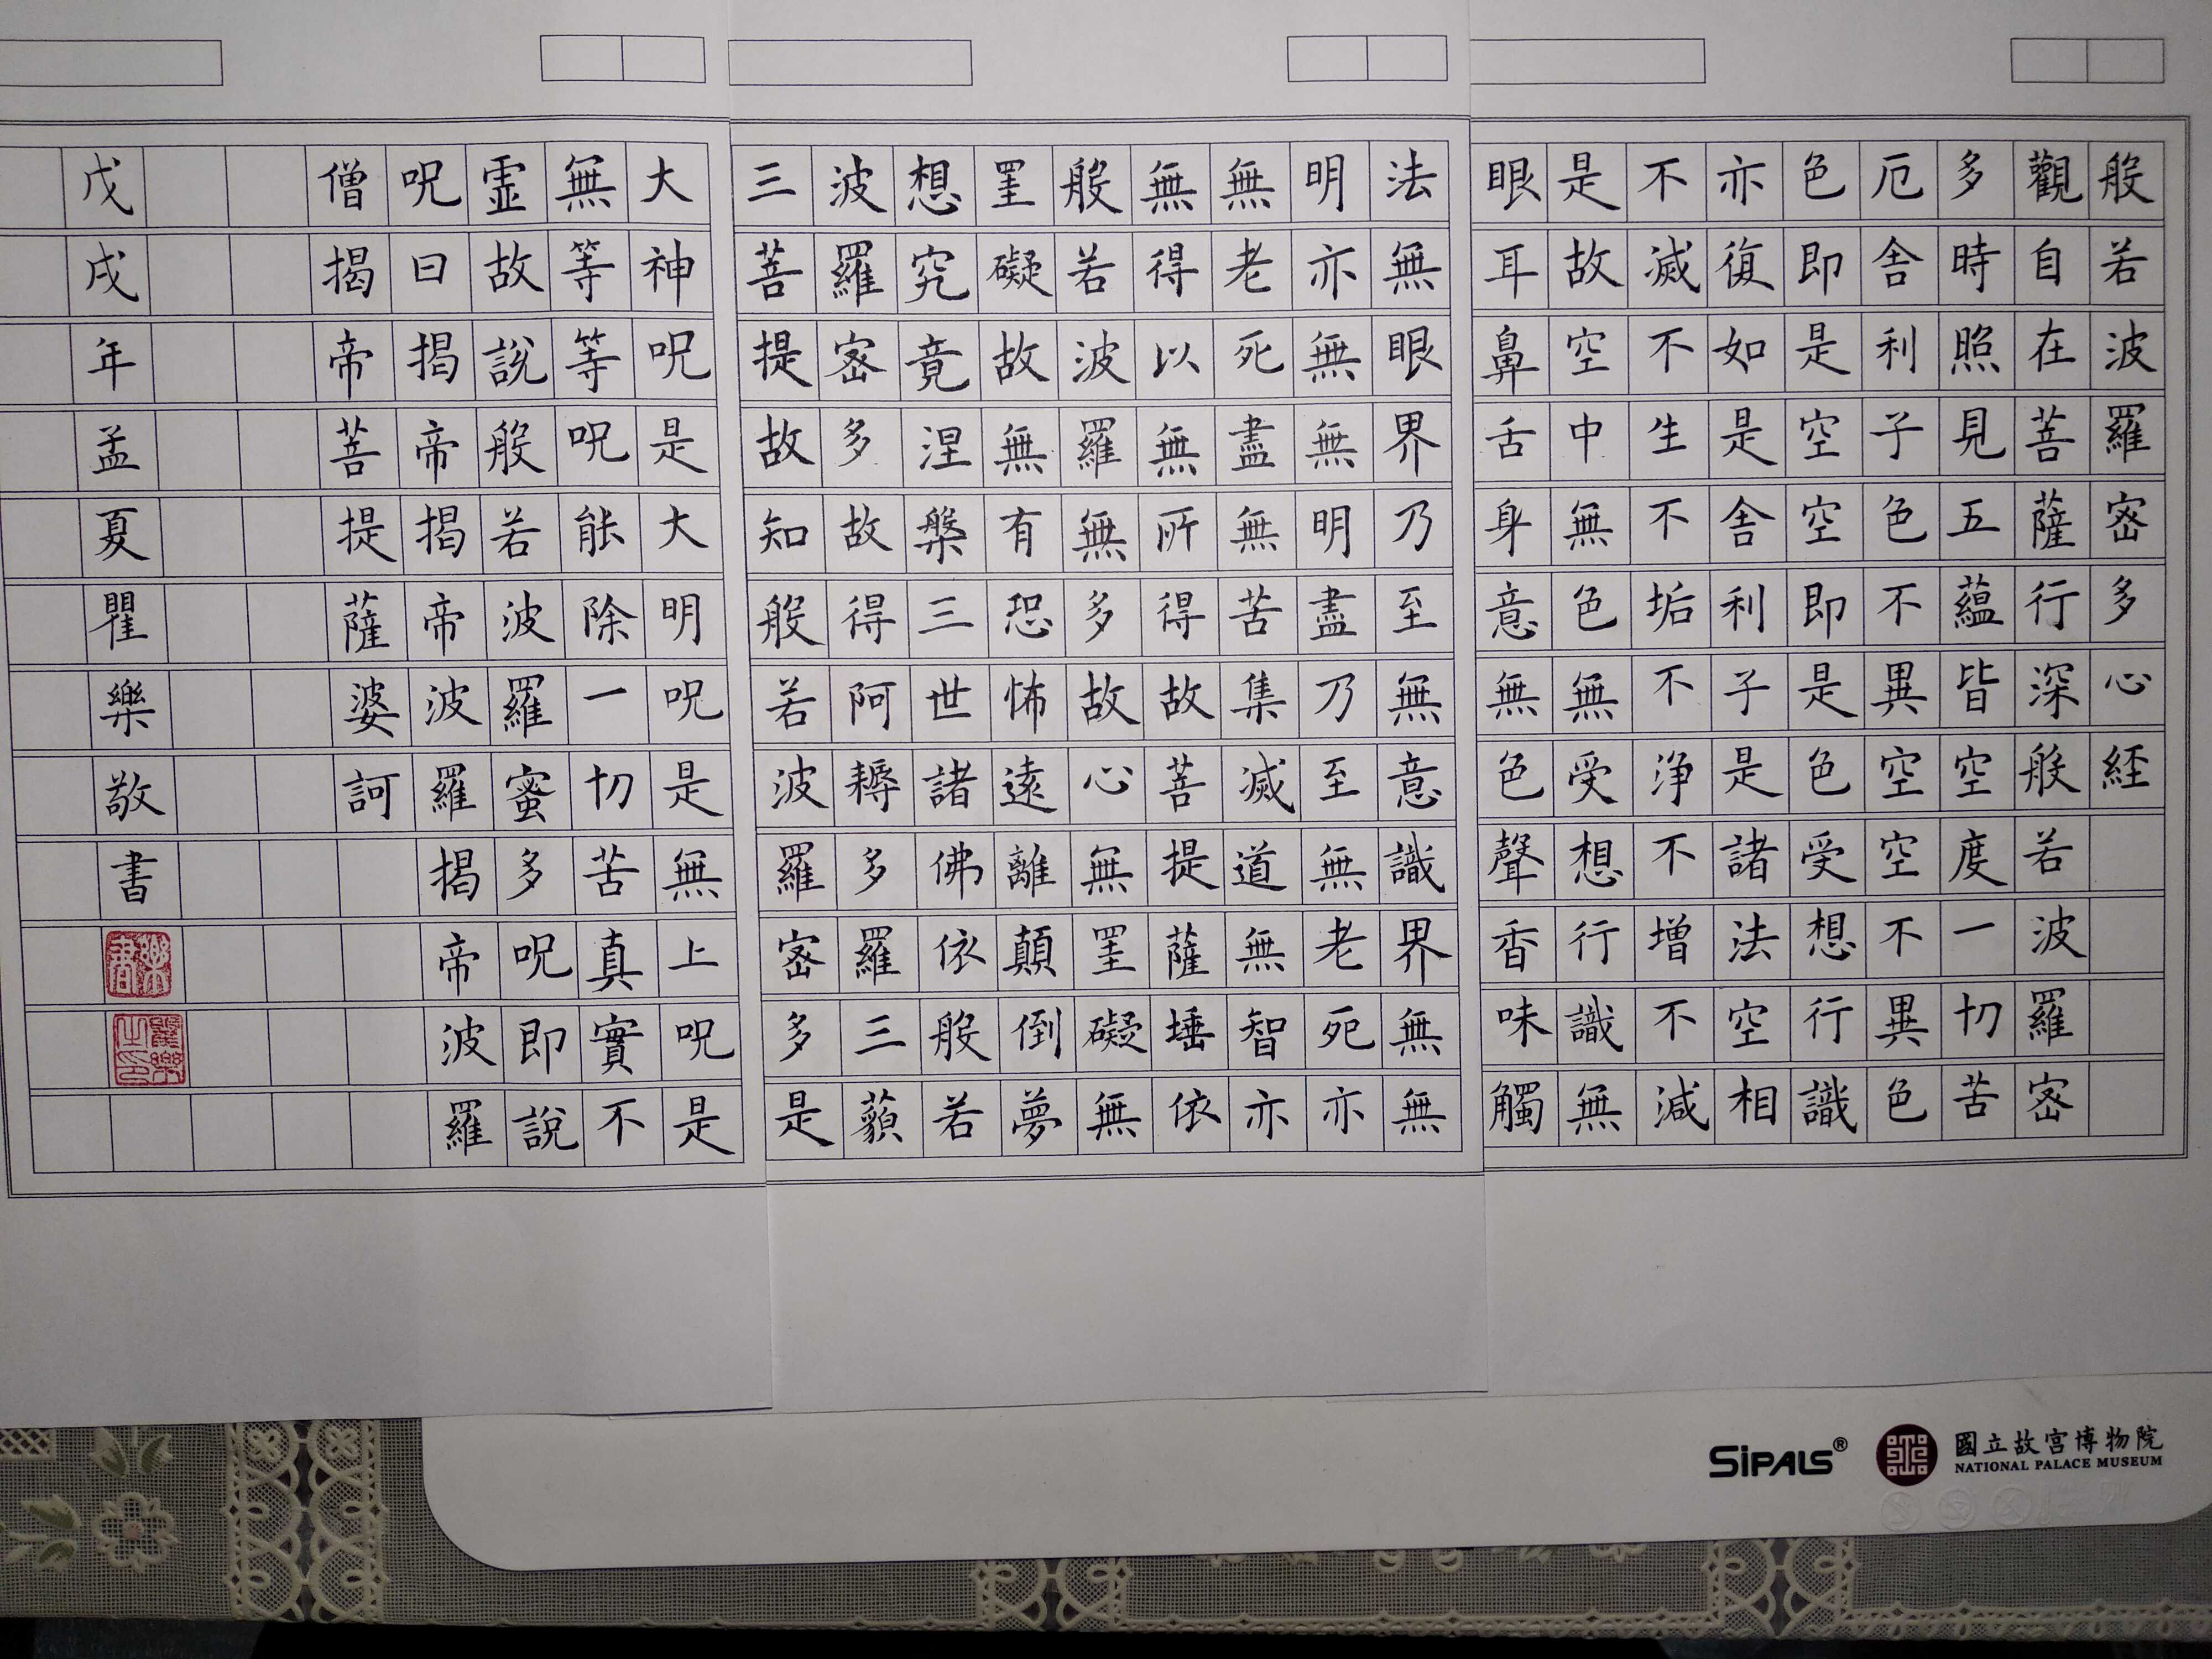 般若波羅宻多心経
觀自在菩薩行深般若波羅宻
多時照見五蘊皆空度一切苦
厄舍利子色不異空空不異色
色即是空空即是色受想行識
亦復如是舍利子是諸法空相
不滅不生不垢不淨不增不減
是故空中無色無受想行識無
眼耳鼻舌身意無色聲香味觸
法無眼界乃至無意識界無無
明亦無無明盡乃至無老死亦
無老死盡無苦集滅道無智亦
無得以無所得故菩提薩埵依
般若波羅無多故心無罣礙無
罣礙故無有恐怖遠離顛倒夢
想究竟涅槃三世諸佛依般若
波羅宻多故得阿耨多羅三藐
三菩提故知般若波羅宻多是
大神呪是大明呪是無上呪是
無等等呪能除一切苦真實不
霊故說般若波羅蜜多呪即說
呪曰揭帝揭帝波羅揭帝波羅
僧揭帝菩提薩婆訶
戊戌年孟夏瞿樂敬書
SiPALS®
國立故宮博物院
NATIONAL PALACE MUSEUM